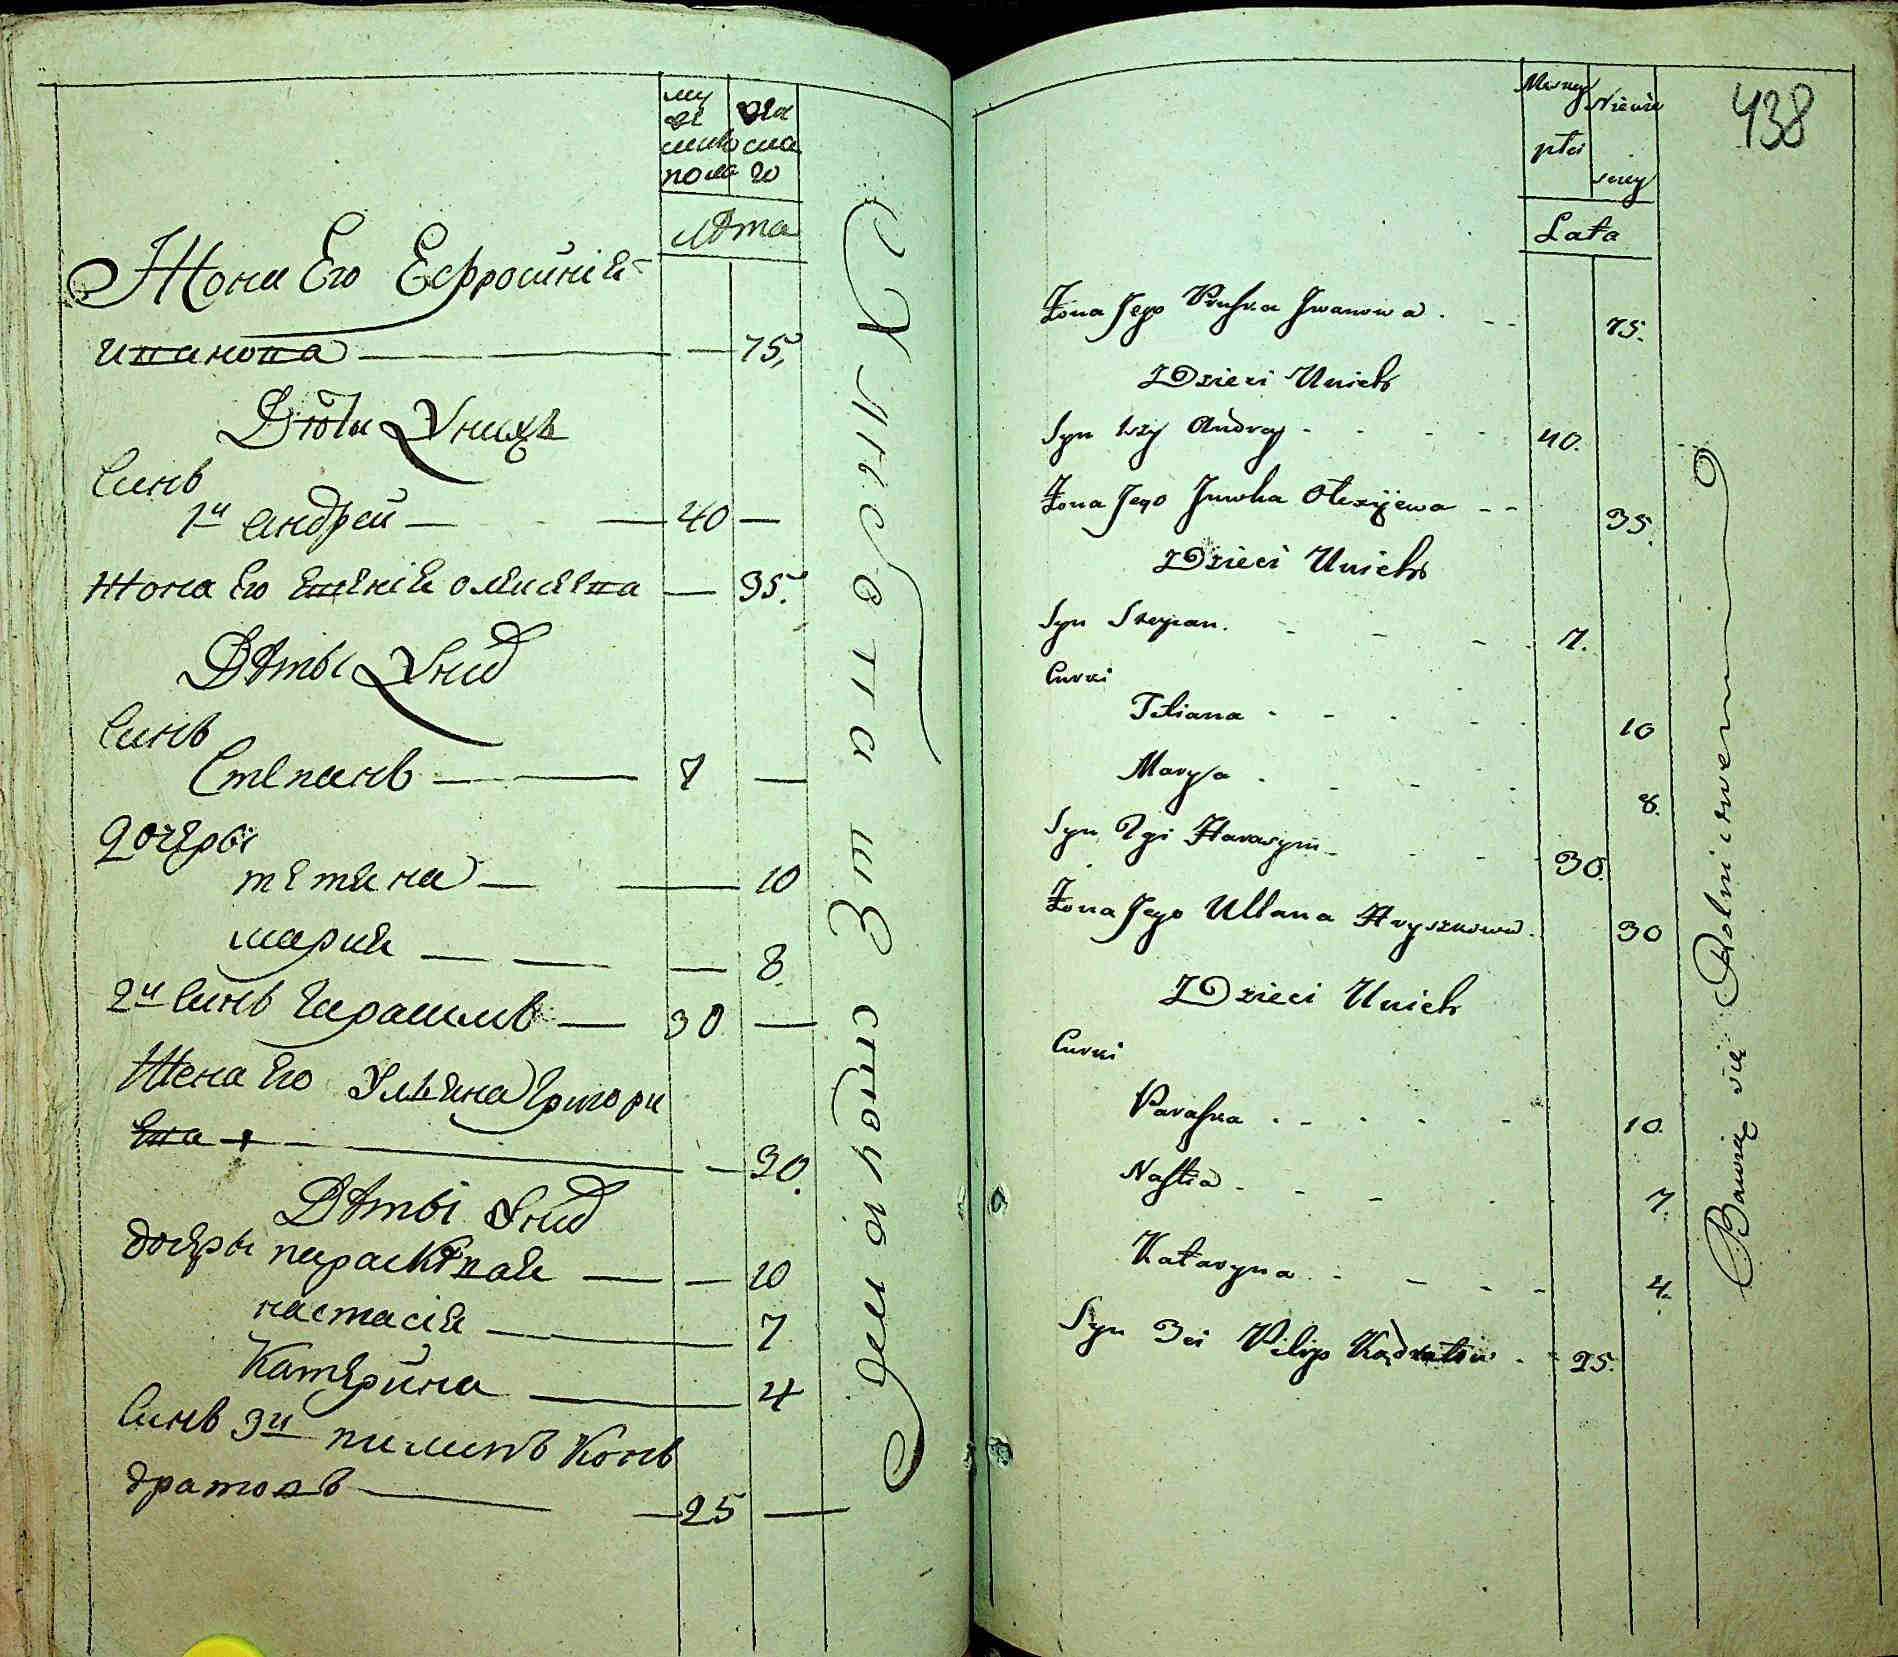 му
же
ска
пола
жен
ска
го
Лѣта
Жона Его Ефросинія
ивановa 75
Дѣти Уних
Синъ
1й андрей 40
жона Его Евгенія олексеева 35
Дѣты Унид
Синъ
Степанъ 7
дочеры
тетяна 10
мария 8
2й Синъ Герасимъ 30
Жена Его Уляна Григори
ева 30
Дѣты Унид
дочеры параскевая 10
настасія 7
Катерина 4
Синъ 3й пилипъ Конъ
дратовъ 25
438
Męzkey
płci
Niewie
sciey
Lata
Żona Jego Pruska Jwanowa 75.
Dzieci Unich
Syn 1szy Andrey 40.
Żona Jego Juwha Olexijewa 35.
Dzieci Unich
Syn Stepan. 7.
Curki
Tetiana 10
Marysa 8.
Syn 2gi Harasym 30.
Żona Jego Ullana Hryszkowa 30
Dzieci Unich
Curki
Paraska 10.
Nastia 7.
Kataryna 4.
Syn 3ci Pilip Kądratów 25.
Bawią się Rolnictwem